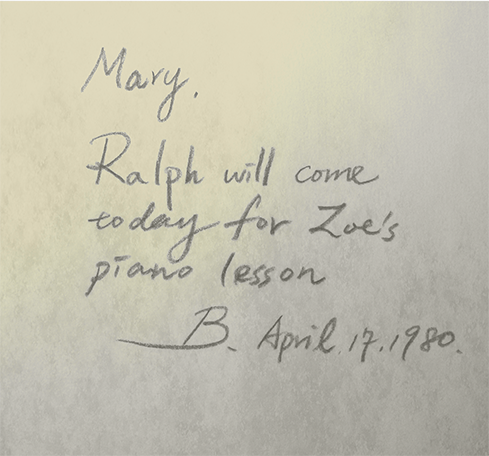 Mary.
Ralph will come
today for Zoe's
piano lesson
B. April 17. 1980.